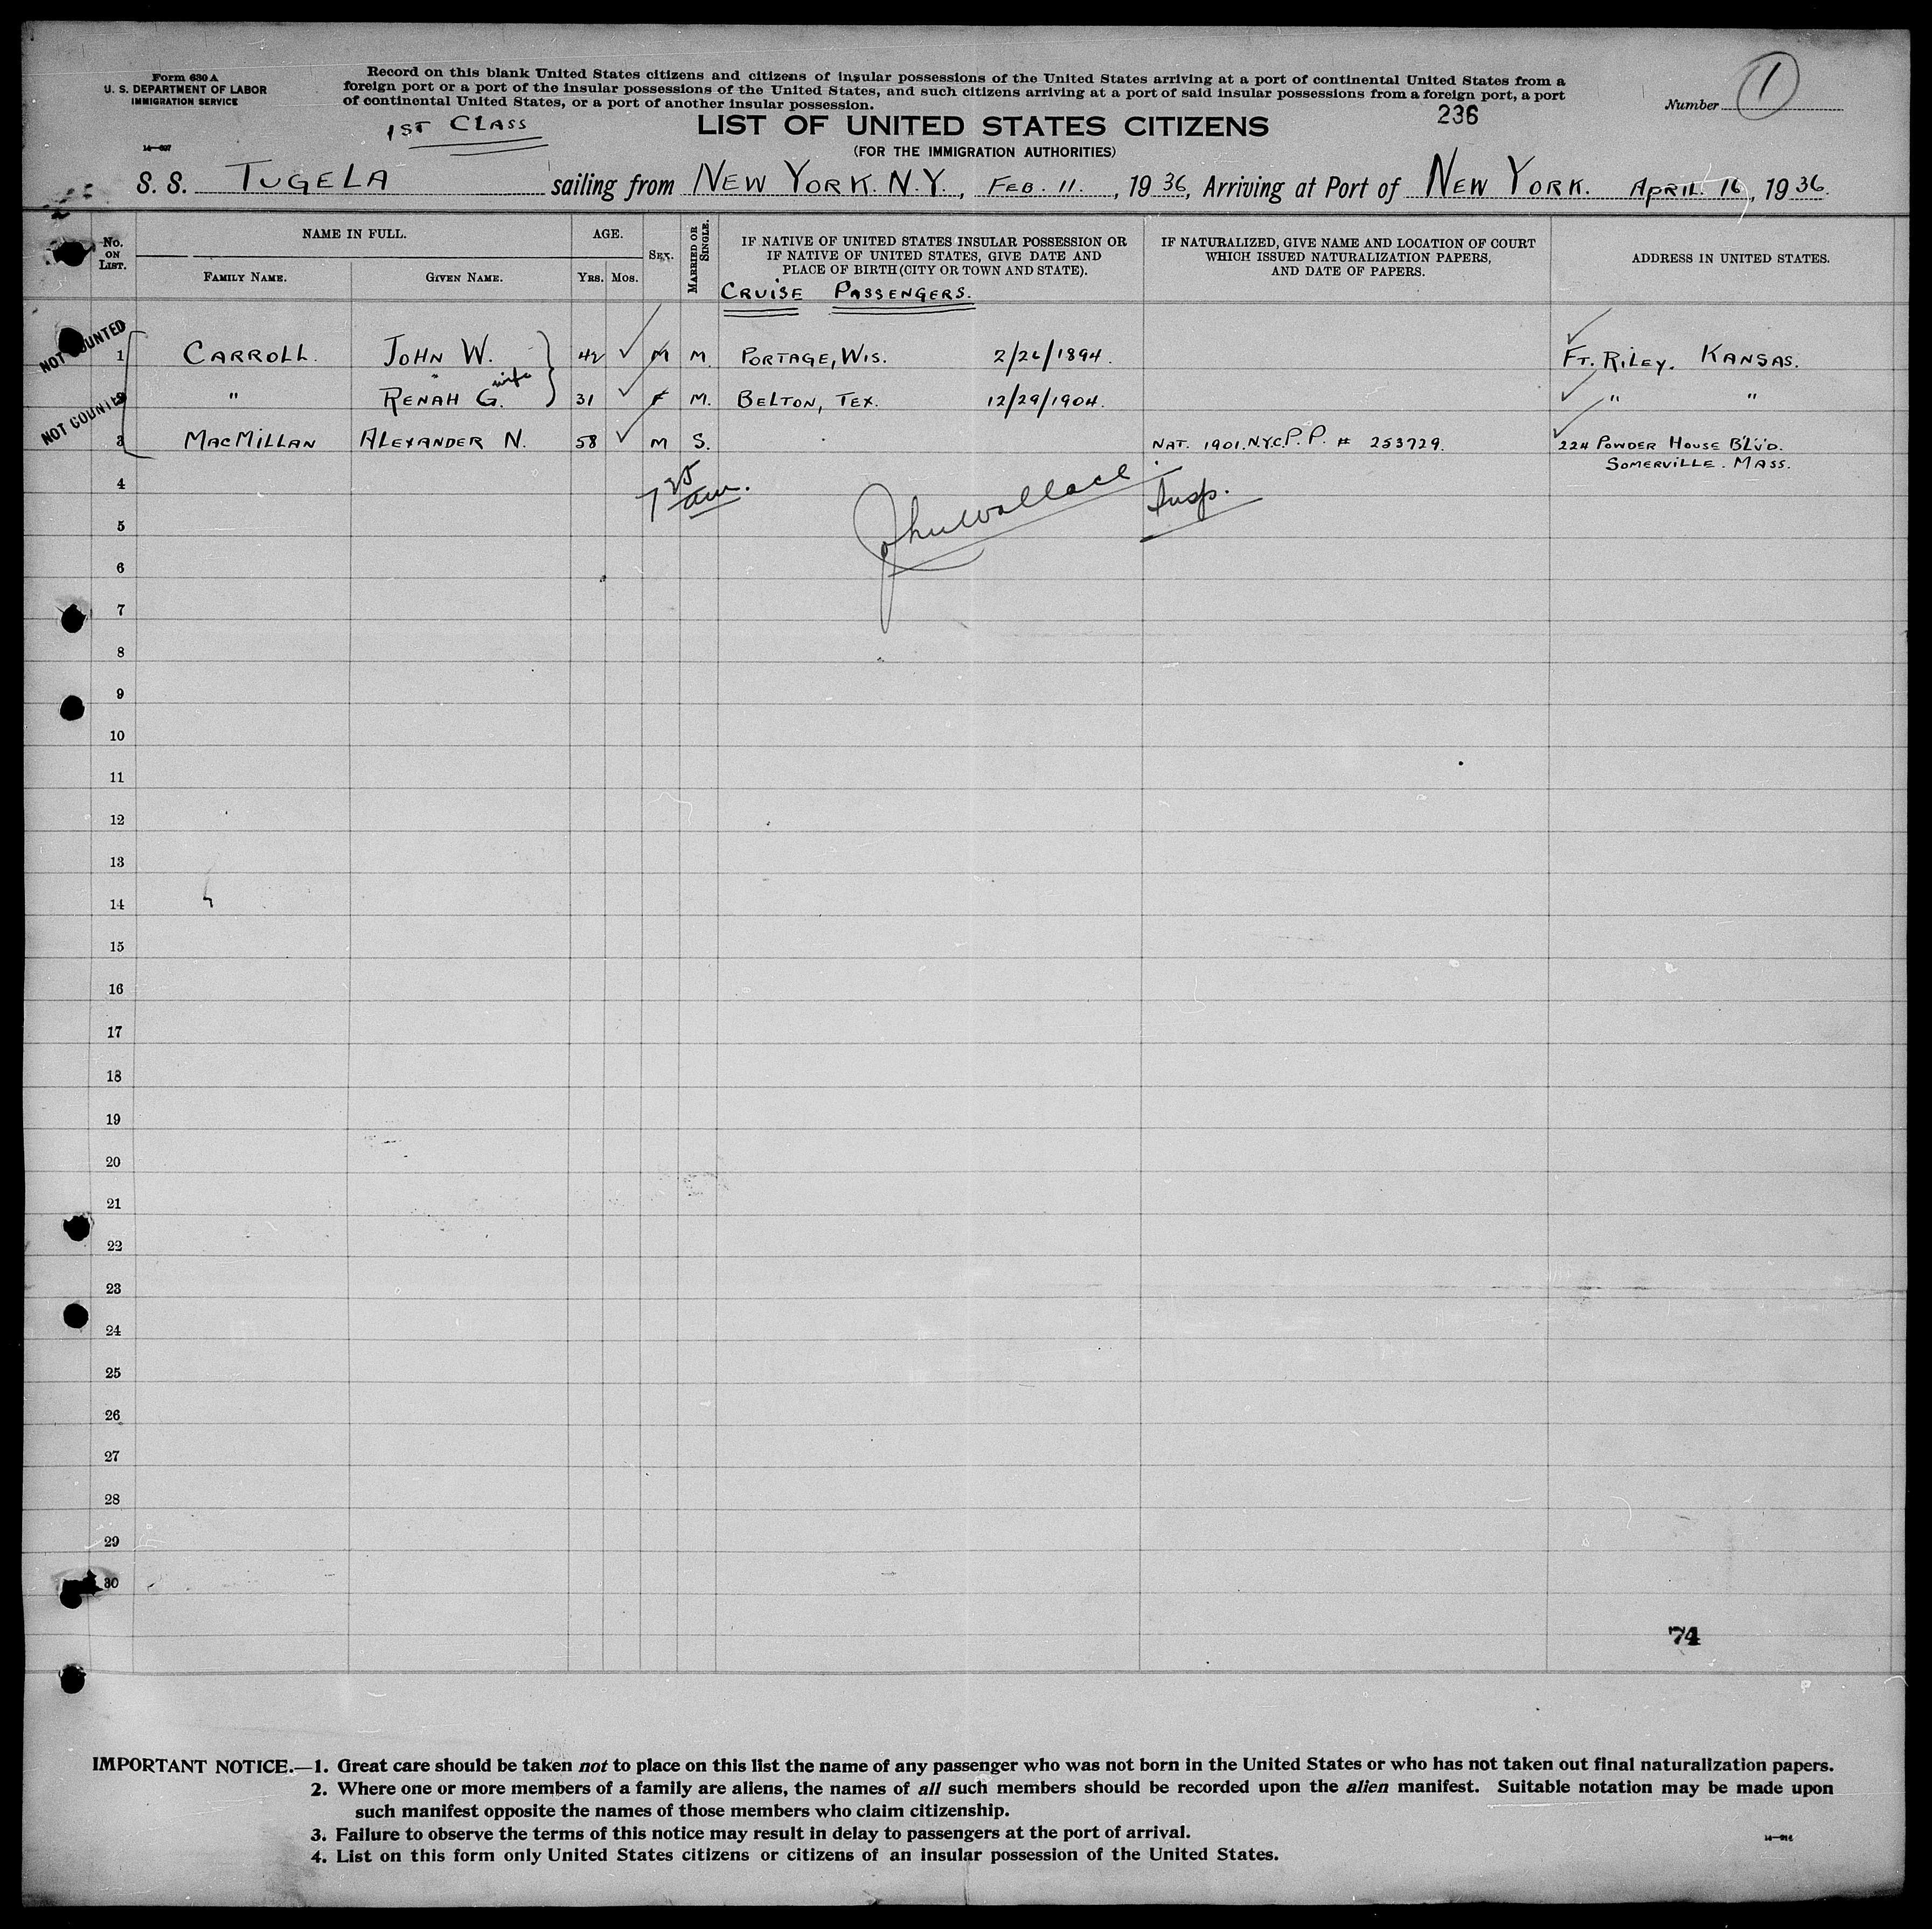 Form 630 A
U. S. DEPARTMENT OF LABOR
IMMIGRATION SERVICE
Record on this blank United States citizens and citizens of insular possessions of the United States arriving at a port of continental United States from a
foreign port or a port of the insular possessions of the United States, and such citizens arriving at a port of said insular possessions from a foreign port, a port
of continental United States, or a port of another insular possession.
Number 1
236
1ST CLASS
LIST OF UNITED STATES CITIZENS
(FOR THE IMMIGRATION AUTHORITIES)
S. S. TUGELA sailing from NEW YORK. N.Y., FEB. 11., 1936, Arriving at Port of NEW YORK. APRIL. 16, 1936.
No. ON LIST.
NAME IN FULL.
FAMILY NAME. GIVEN NAME.
AGE.
YRS. MOS.
SEX.
MARRIED OR SINGLE.
IF NATIVE OF UNITED STATES INSULAR POSSESSION OR
IF NATIVE OF UNITED STATES, GIVE DATE AND
PLACE OF BIRTH (CITY OR TOWN AND STATE).
IF NATURALIZED, GIVE NAME AND LOCATION OF COURT
WHICH ISSUED NATURALIZATION PAPERS,
AND DATE OF PAPERS.
ADDRESS IN UNITED STATES.
CRUISE PASSENGERS.
NOT COUNTED
1 CARROLL. JOHN W. 42 M M. PORTAGE, WIS. 2/26/1894. FT. RILEY. KANSAS.
wife
2 " RENAH G. 31 F M. BELTON, TEX. 12/29/1904. " "
NOT COUNTED
3 MACMILLAN ALEXANDER N. 58 M S. NAT. 1901. N.Y.C. P.P. # 253729. 224 POWDER HOUSE BLVD.
SOMERVILLE. MASS.
4
7 25 am.
John Wallace Insp.
5
6
7
8
9
10
11
12
13
14
15
16
17
18
19
20
21
22
23
24
25
26
27
28
29
30
74
IMPORTANT NOTICE.—1. Great care should be taken not to place on this list the name of any passenger who was not born in the United States or who has not taken out final naturalization papers.
2. Where one or more members of a family are aliens, the names of all such members should be recorded upon the alien manifest. Suitable notation may be made upon
such manifest opposite the names of those members who claim citizenship.
3. Failure to observe the terms of this notice may result in delay to passengers at the port of arrival.
4. List on this form only United States citizens or citizens of an insular possession of the United States.